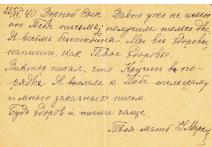 Дорогой Зах Давно уже не имею
от Тебя письма, получили только два.
Я весьма беспокоюсь. Мы все здоровы
напиши, как Твое здоровье
Виктор писал, что в по-
рядке. Я выслала к Тебе телеграму
и много заказных писем.
Будь здоров и пиши чаще
Твоя мать